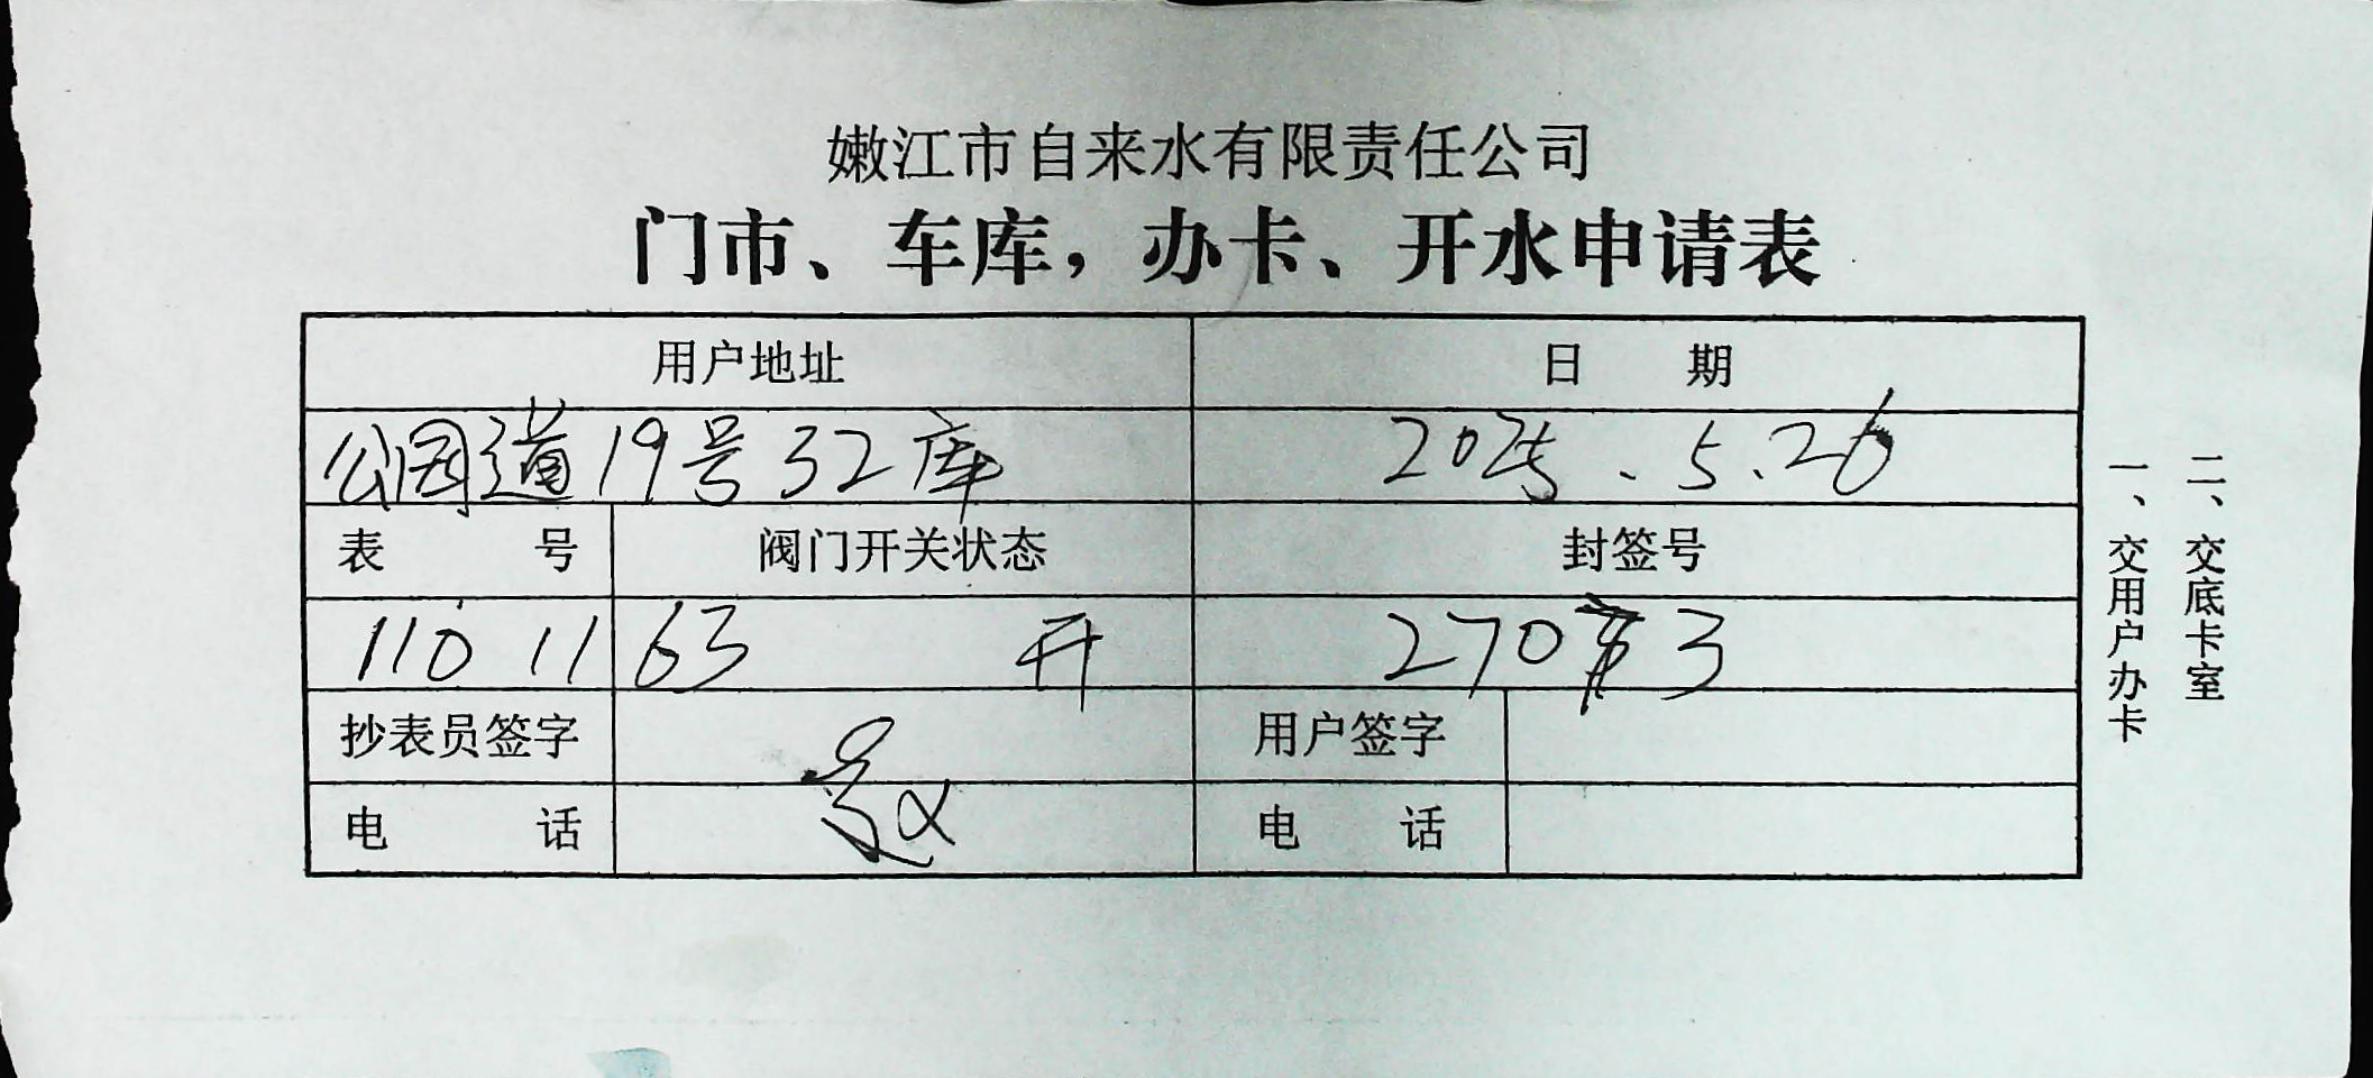 嫩江市自来水有限责任公司
门市、车库，办卡、开水申请表
用户地址 日 期
公园道19号32库 2025.5.26
表 号 阀门开关状态 封签号
110 1163 开 270 3
抄表员签字 用户签字
电 话 电 话
一、交用户办卡
二、交底卡室